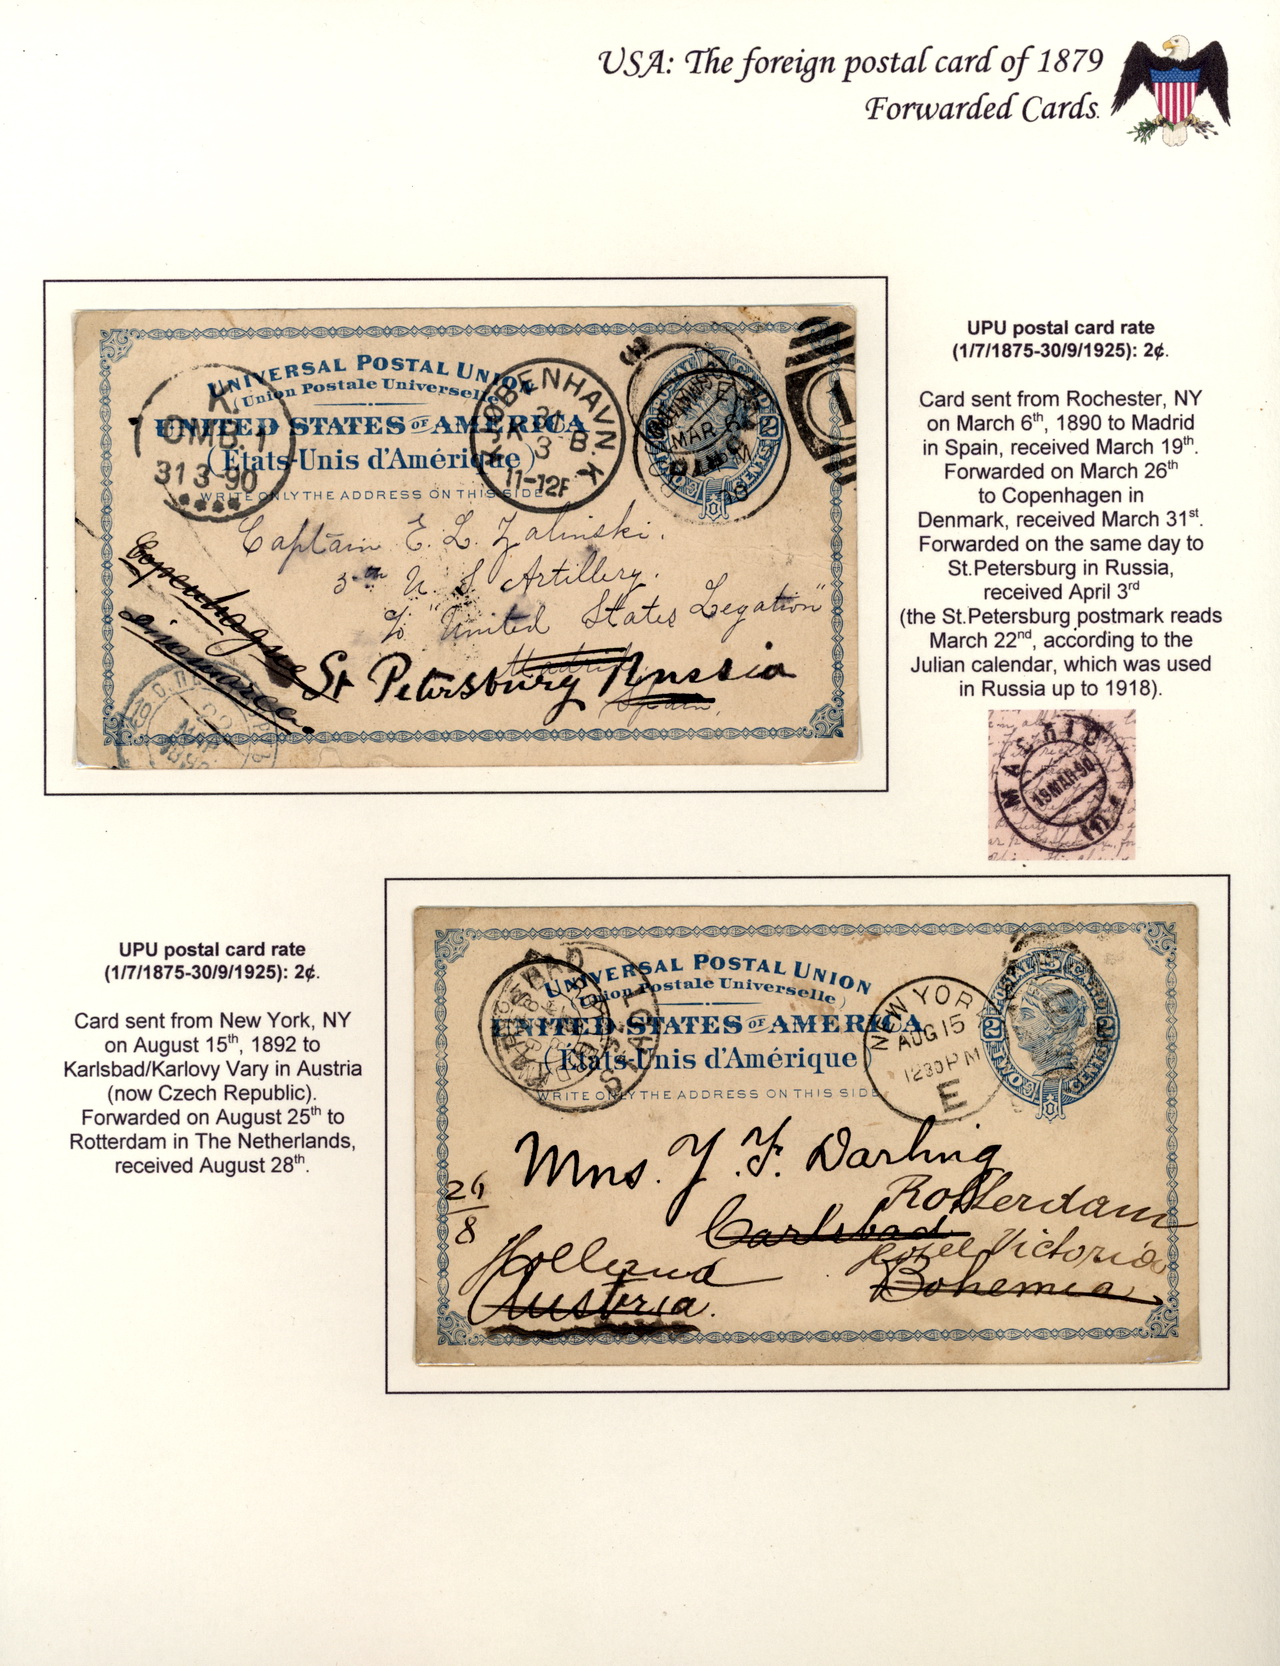 USA: The foreign postal card of 1879
Forwarded Cards.
UNIVERSAL POSTAL UNION
(Union Postale Universelle)
UNITED STATES OF AMERICA
(États-Unis d'Amérique)
WRITE ONLY THE ADDRESS ON THIS SIDE
K.
OMB. 1
31 3-90
KJØBENHAVN. K
3
11-12F
MAR 6
1
Captain E. L. Zalinski.
5th U. S. Artillery.
c/o "United States Legation"
Madrid
Spain,
Copenhague
Dinamarca
St Petersburg Russia
UPU postal card rate
(1/7/1875-30/9/1925): 2¢.
Card sent from Rochester, NY
on March 6th, 1890 to Madrid
in Spain, received March 19th.
Forwarded on March 26th
to Copenhagen in
Denmark, received March 31st.
Forwarded on the same day to
St.Petersburg in Russia,
received April 3rd
(the St.Petersburg postmark reads
March 22nd, according to the
Julian calendar, which was used
in Russia up to 1918).
MADRID
19 MAR 90
UPU postal card rate
(1/7/1875-30/9/1925): 2¢.
Card sent from New York, NY
on August 15th, 1892 to
Karlsbad/Karlovy Vary in Austria
(now Czech Republic).
Forwarded on August 25th to
Rotterdam in The Netherlands,
received August 28th.
UNIVERSAL POSTAL UNION
(Union Postale Universelle)
UNITED STATES OF AMERICA
(États-Unis d'Amérique
WRITE ONLY THE ADDRESS ON THIS SIDE
NEW YORK
AUG 15
1230PM
E
2 TWO CENTS 2
Mrs. J. F. Darling
Rotterdam
Carlsbad
Hotel Victoria
Bohemia
Holland
Austria.
8